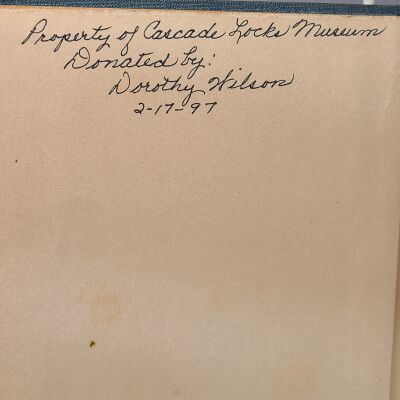 Property of Cascade Locks Museum
Donated by:
Dorothy Wilson
2-17-97